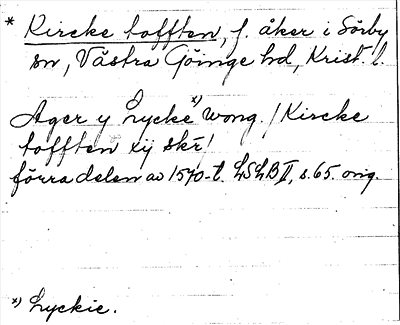 * Kircke tofften, f. åker i Sörby
sn, Västra Göinge hd, Krist. l.
Ager y Lycke *) wong. / Kircke
tofften xij skr̄ /
förra delen av 1570-t. LSLB II, s. 65. orig.
*) Lyckie.